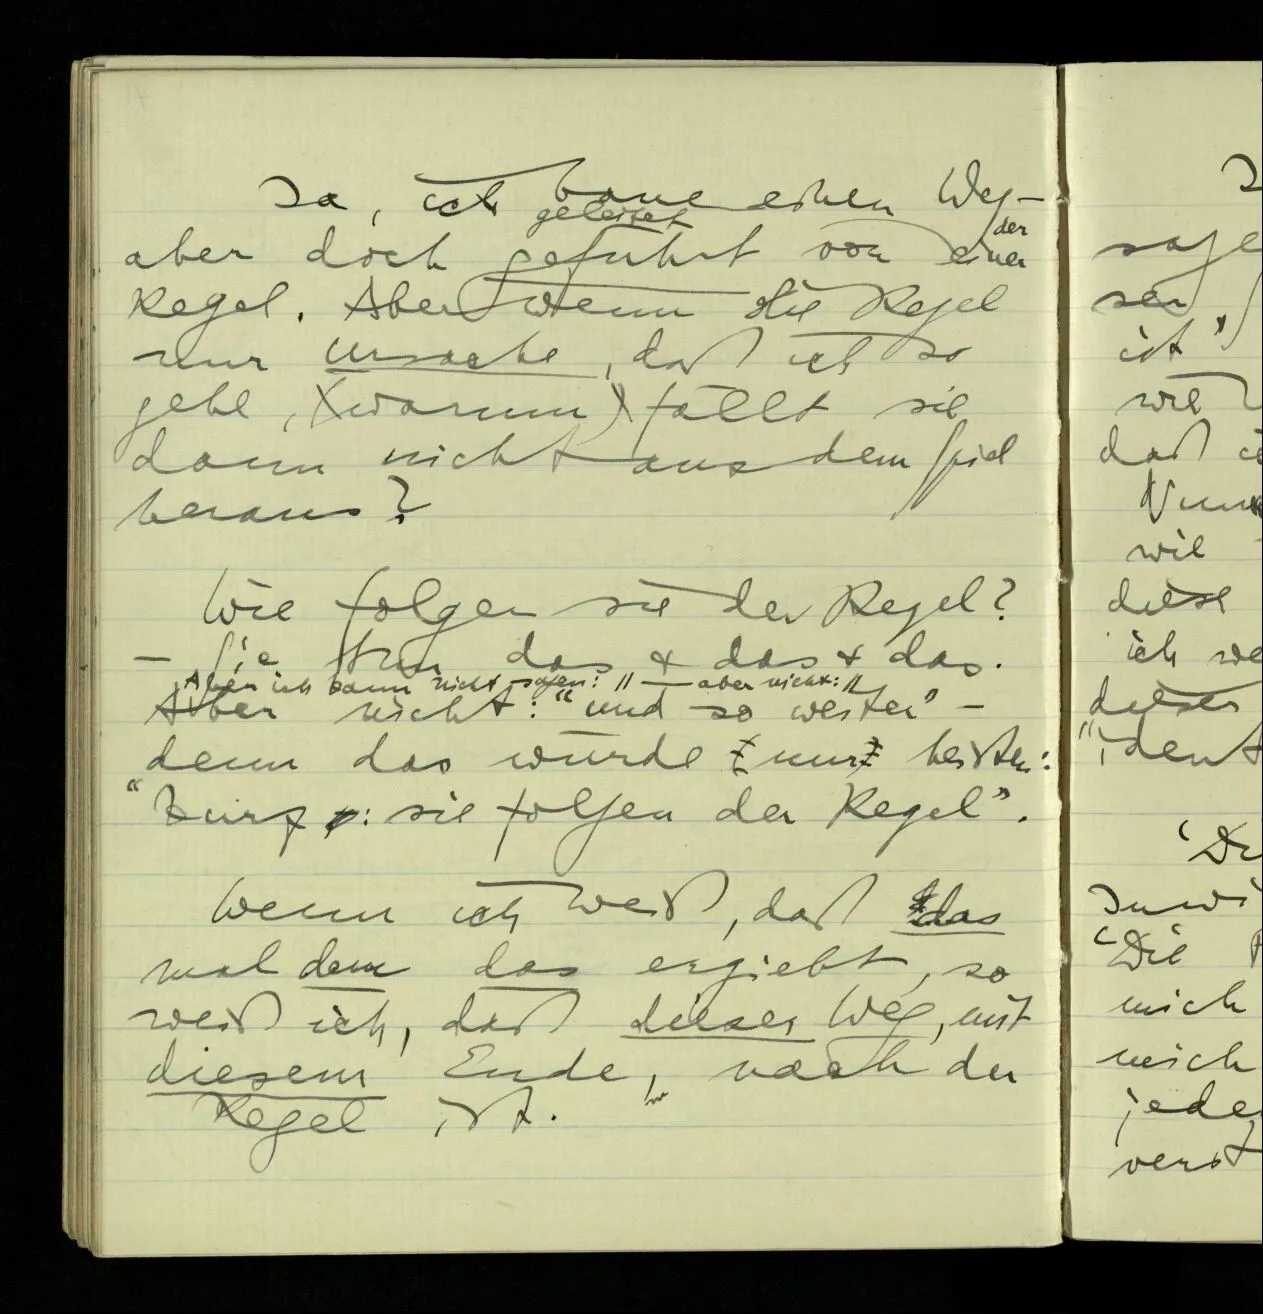 Ja, ich baue einen Weg –
geleitet der
aber doch geführt von einer
Regel. Aber wenn die Regel
nur Ursache, daß ich so
gehe, (warum) fällt sie
dann nicht aus dem Spiel
heraus?
Wie folgen sie der Regel?
– Sie tun das & das & das.
Aber ich kann nicht sagen: " — aber nicht: "
Aber nicht: "und so weiter" –
denn das würde nur heißen:
"Kurz: sie folgen der Regel".
Wenn ich weiß, daß das
mal dem das ergiebt, so
weiß ich, daß dieser Weg, mit
diesem Ende, nach der
Regel ist.
sage
sen
ist"
wie
daß
wie
diese
ich we
dieses
"ident
'Di
Inwi
'Die
mich
mich
jede
verst